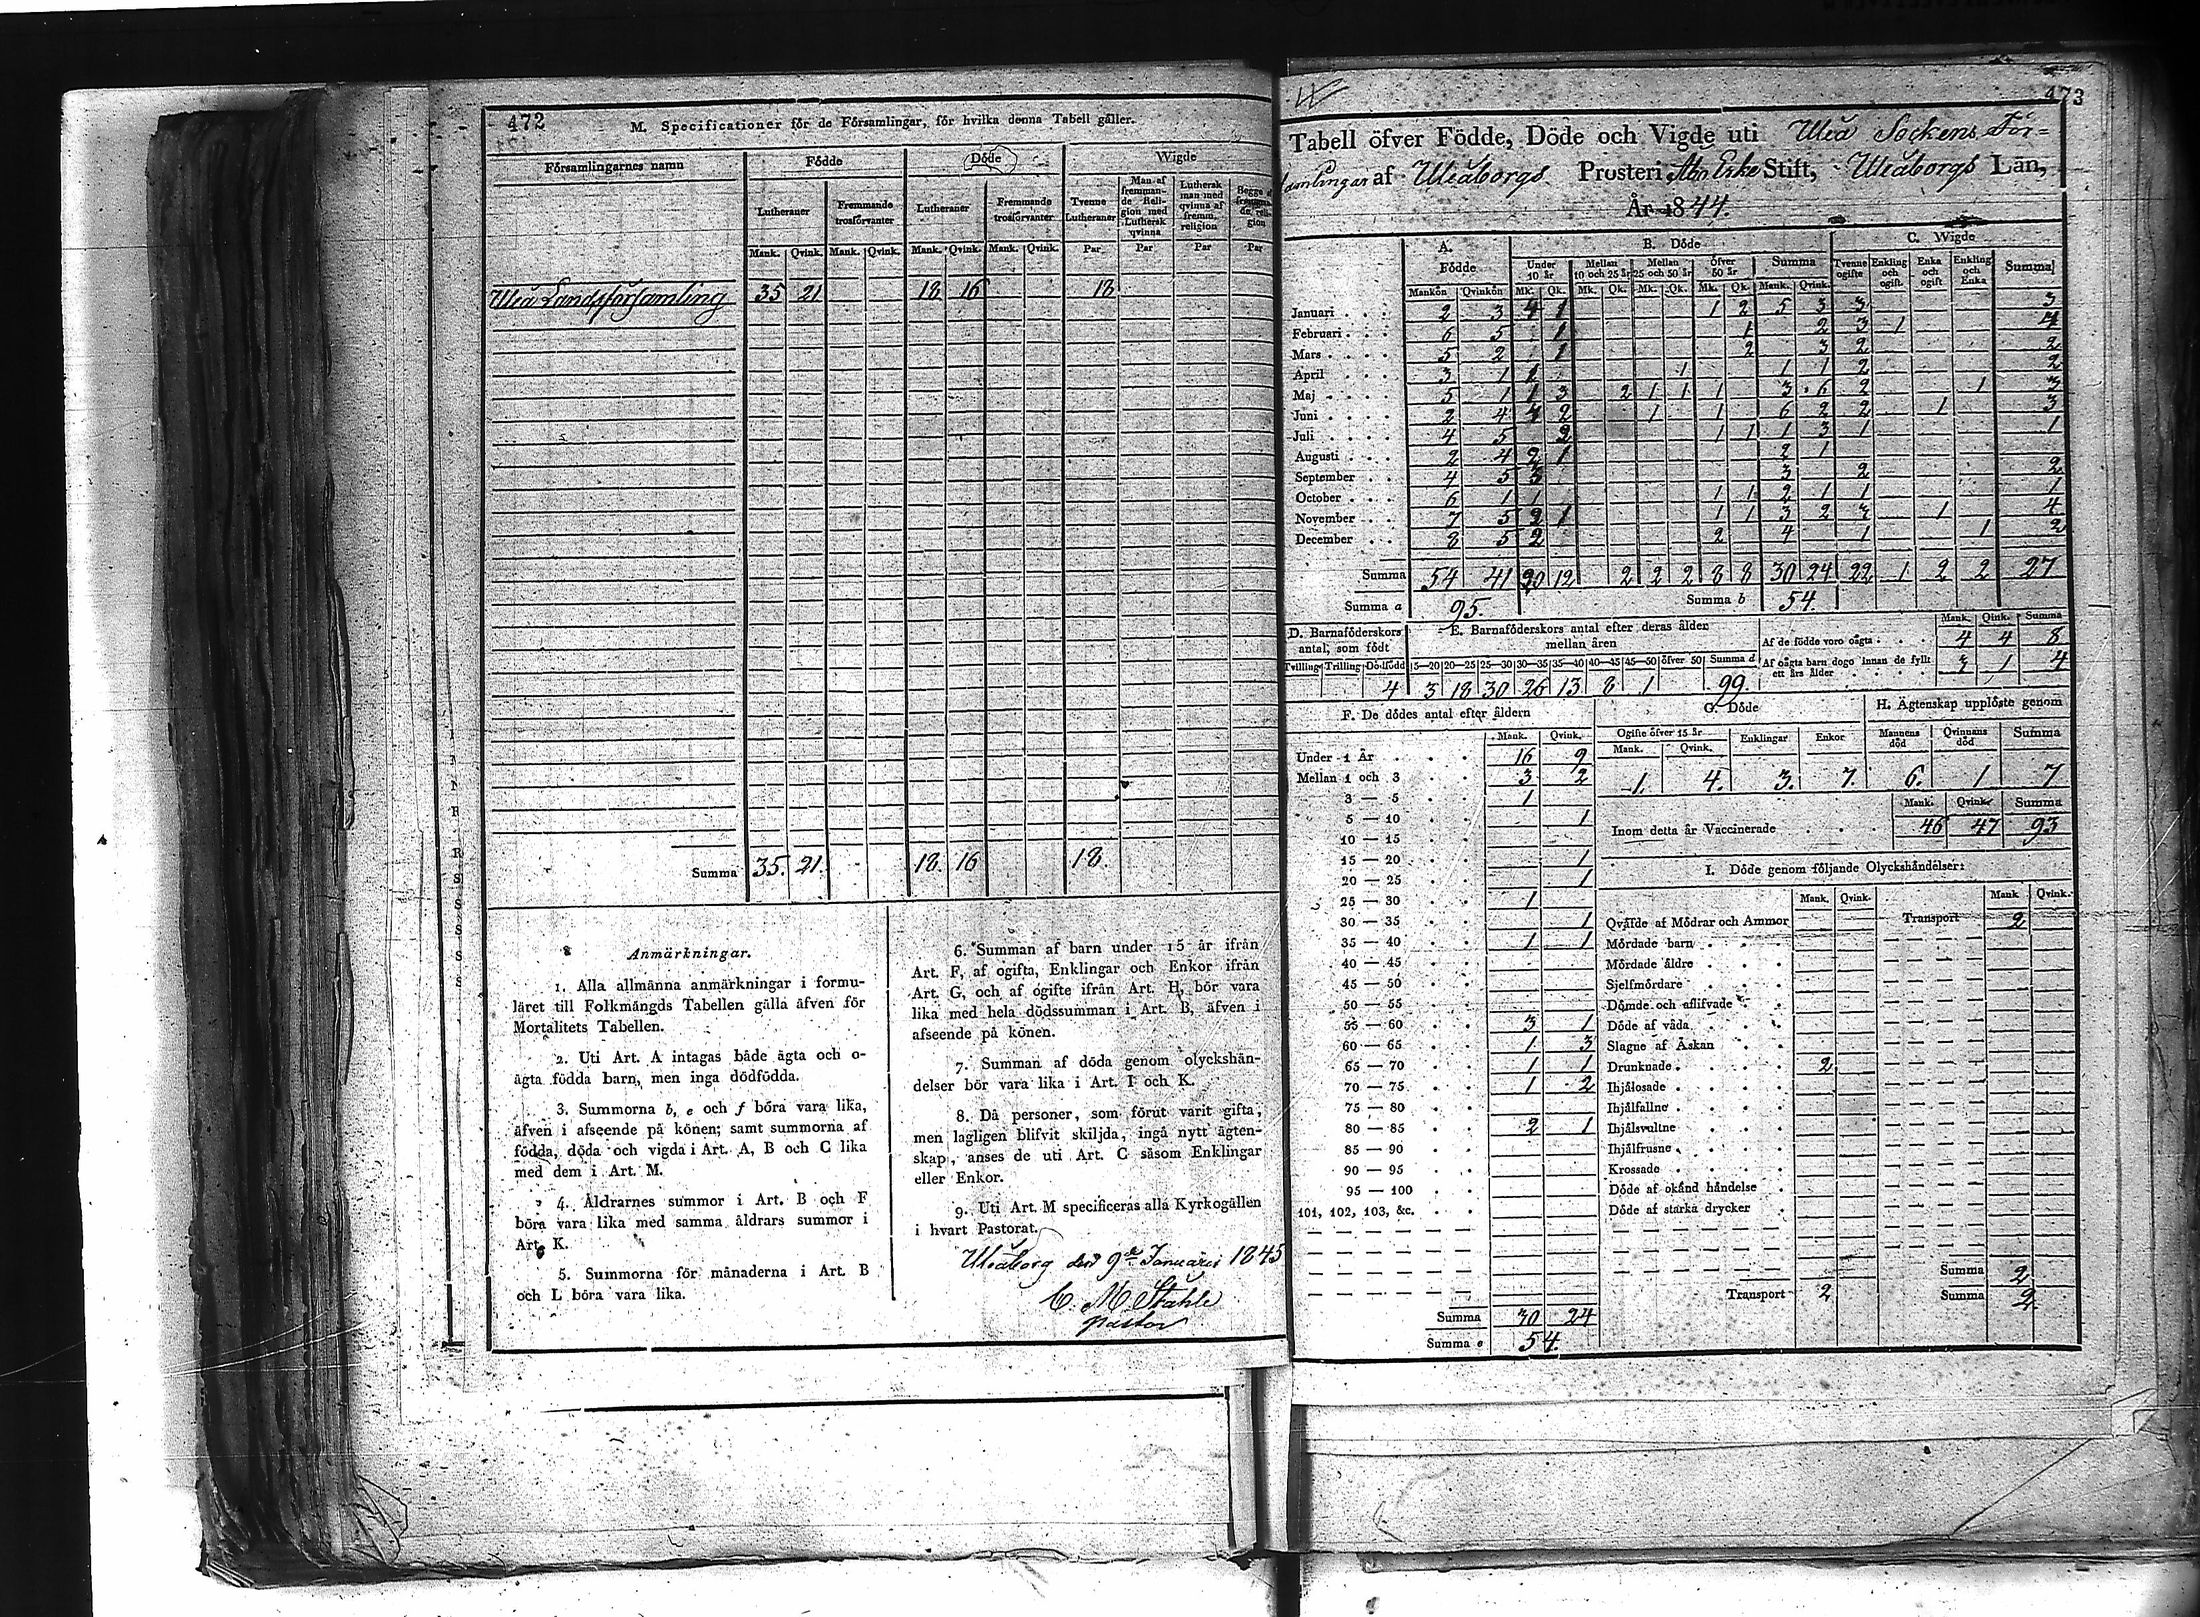 472
M. Specificationer för de Församlingar, för hvilka denna Tabell gäller.
Församlingarnes namn Födde Döde Wigde
Lutheraner Fremmande trosförvanter Lutheraner Fremmande trosförvanter Tvenne Lutheraner Man af fremmande Religion med Luthersk qvinna Luthersk man med qvinna af fremm. religion Begge af religion
Mank. Qvink. Mank. Qvink. Mank. Qvink. Mank. Qvink. Par Par Par Par
Uleå Landsförsamling 35 21 18 16 18
Summa 35. 21. 18. 16 18.
Anmärkningar.
1. Alla allmänna anmärkningar i formu-
läret till Folkmängds Tabellen gälla äfven för
Mortalitets Tabellen.
2. Uti Art. A intagas både ägta och o-
ägta födda barn, men inga dödfödda.
3. Summorna b, e och f böra vara lika,
äfven i afseende på könen; samt summorna af
födda, döda och vigda i Art. A, B och C lika
med dem i Art. M.
4. Åldrarnes summor i Art. B och F
böra vara lika med samma åldrars summor i
Art. K.
5. Summorna för månaderna i Art. B
och L böra vara lika.
6. Summan af barn under 15 år ifrån
Art. F, af ogifta, Enklingar och Enkor ifrån
Art. G, och af ogifte ifrån Art. H, bör vara
lika med hela dödssumman i Art. B, äfven i
afseende på könen.
7. Summan af döda genom olyckshän-
delser bör vara lika i Art. I och K.
8. Då personer, som förut varit gifta,
men lagligen blifvit skiljda, ingå nytt ägten-
skap, anses de uti Art. C såsom Enklingar
eller Enkor.
9. Uti Art. M specificeras alla Kyrkogällen
i hvart Pastorat.
Uleåborg den 9de Januarii 1845
C. M. Ståhle
pastor
473
Tabell öfver Födde, Döde och Vigde uti Uleå Sockens För=
samlingar af Uleåborgs Prosteri Åbo Erke Stift, Uleåborgs Län,
År 1844.
A. Födde B. Döde C. Wigde
Under 10 år Mellan 10 och 25 år Mellan 25 och 50 år Öfver 50 år Summa Tvenne ogifte Enkling och ogift Enka och ogift Enkling och Enka Summa
Mankön Qvinkön Mk. Qk. Mk. Qk. Mk. Qk. Mk. Qk. Mank. Qvink.
Januari 2 3 4 1 1 2 5 3 3 3
Februari 6 5 1 1 2 3 1 4
Mars 5 2 1 2 3 2 2
April 3 1 1 1 1 1 2 2
Maj 5 1 1 3 2 1 1 1 3 6 2 1 3
Juni 2 4 4 2 1 1 6 2 2 1 3
Juli 4 5 2 1 1 1 3 1 1
Augusti 2 4 2 1 2 1
September 4 5 3 3 2 2
October 6 1 1 1 1 2 1 1 1
November 7 5 2 1 1 1 3 2 3 1 4
December 8 5 2 2 4 1 1 2
Summa 54 41 20 12 2 2 2 8 8 30 24 22 1 2 2 27
Summa a 95. Summa b 54.
D. Barnaföderskors antal, som födt
Tvilling Trilling Dödfödd
4
E. Barnaföderskors antal efter deras ålder mellan åren
15—20 20—25 25—30 30—35 35—40 40—45 45—50 öfver 50 Summa d
3 18 30 26 13 8 1 99.
Mank. Qink. Summa
Af de födde voro oägta 4 4 8
Af oägta barn dogo innan de fyllt ett års ålder 3 1 4
F. De dödes antal efter åldern
Mank. Qvink.
Under 1 År 16 9
Mellan 1 och 3 3 2
3 — 5 1
5 — 10 1
10 — 15
15 — 20 1
20 — 25 1
25 — 30 1
30 — 35 1
35 — 40 1 1
40 — 45
45 — 50
50 — 55
55 — 60 3 1
60 — 65 1 3
65 — 70 1 1
70 — 75 1 2
75 — 80
80 — 85 2 1
85 — 90
90 — 95
95 — 100
101, 102, 103, &c.
Summa 30 24
Summa e 54.
G. Döde
Ogifte öfver 15 år Enklingar Enkor
Mank. Qvink.
1. 4. 3. 7.
H. Ägtenskap upplöste genom
Mannens död Qvinnans död Summa
6. 1 7
Mank. Qvink. Summa
Inom detta år Vaccinerade 46 47 93
I. Döde genom följande Olyckshändelser:
Mank. Qvink. Mank Qvink.
Qväfde af Mödrar och Ammor Transport 2
Mördade barn
Mördade äldre
Sjelfmördare
Dömde och aflifvade
Döde af våda
Slagne af Åskan
Drunknade 2
Ihjälosade
Ihjälfallne
Ihjälsvultne
Ihjälfrusne
Krossade
Döde af okänd händelse
Döde af starka drycker
Summa 2
Transport 2 Summa 2.